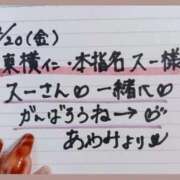 /20(金)
東横イン・本指名スー様
スーさん♡一緒に♡
がんばろうね→♡
あゆみより